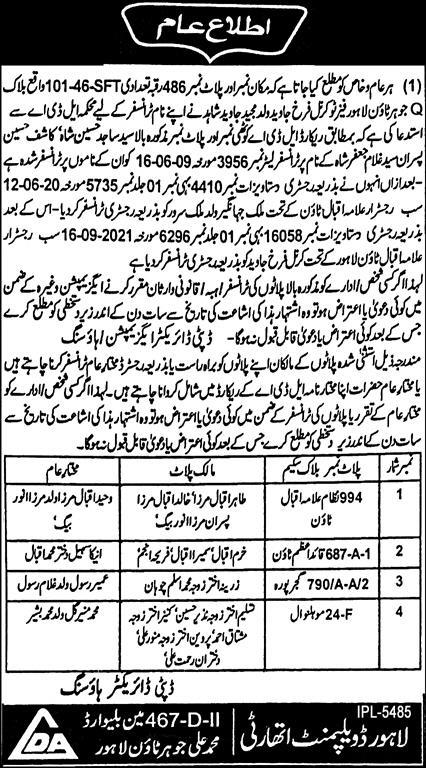 اطلاع عام
(1) ہر عام و خاص کو مطلع کیا جاتا ہے کہ مکان نمبر اور پلاٹ نمبر 486 رقبہ تعدادی 101-46-SFT واقع بلاک
Q جوہر ٹاؤن لاہور فیز ٹو کرنل فرخ جاوید ولد مجید جاوید شاہد نے اپنے نام ٹرانسفر کے لیے محکمہ ایل ڈی اے سے
استدعا کی ہے کہ بمطابق ریکارڈ ایل ڈی اے کوٹھی نمبر اور پلاٹ نمبر مذکورہ بالا سید ساجد حسین شاہ کاشف حسین
پسران سید غلام جعفر شاہ کے نام پر ٹرانسفر لیٹر نمبر 3956 مورخہ 09-06-16 کو ان کے ناموں پر ٹرانسفر شدہ ہے
بعد ازاں انہوں نے بذریعہ رجسٹری دستاویزات نمبر 4410 بہی نمبر 01 جلد نمبر 5735 مورخہ 20-06-12
سب رجسٹرار علامہ اقبال ٹاؤن کے تحت ملک جہانگیر ولد ملک سرور کو بذریعہ رجسٹری ٹرانسفر کر دیا۔ اس کے بعد
بذریعہ رجسٹری دستاویزات نمبر 16058 بہی نمبر 01 جلد نمبر 6296 مورخہ 2021-09-16 سب رجسٹرار
علامہ اقبال ٹاؤن لاہور کے تحت کرنل فرخ جاوید کو بذریعہ رجسٹری ٹرانسفر کر دیا ہے
لہٰذا اگر کسی شخص / ادارے کو مذکورہ بالا پلاٹوں کی ٹرانسفر / ہبہ / قانونی وارثان مقرر کرنے / ایگزیمپشن وغیرہ کے ضمن
میں کوئی دعویٰ یا اعتراض ہو تو وہ اشتہار ہذا کی اشاعت کی تاریخ سے سات دن کے اندر زیر دستخطی کو مطلع کرے
جس کے بعد کوئی اعتراض یا دعویٰ قابل قبول نہ ہوگا۔ ڈپٹی ڈائریکٹر ایگزیمپشن / ہاؤسنگ
مندرجہ ذیل استثنیٰ شدہ پلاٹوں کے مالکان اپنے پلاٹوں کو براہ راست یا بذریعہ رجسٹرڈ مختار عام ٹرانسفر کرنا چاہتے ہیں
یا مختار عام حضرات اپنا مختار نامہ ایل ڈی اے کے ریکارڈ میں شامل کروانا چاہتے ہیں۔ لہٰذا اگر کسی شخص / ادارے کو
مختار عام کے تقرر یا پلاٹوں کی ٹرانسفر کے ضمن میں کوئی دعویٰ یا اعتراض ہو تو وہ اشتہار ہذا کی اشاعت کی تاریخ سے
سات دن کے اندر زیر دستخطی کو مطلع کرے جس کے بعد کوئی اعتراض یا دعویٰ قابل قبول نہ ہوگا۔
نمبر شمار پلاٹ نمبر بلاک سکیم مالک پلاٹ مختار عام
1 994 نظام علامہ اقبال ٹاؤن طاہر اقبال مرزا خالد اقبال مرزا پسران مرزا انور بیگ وحید اقبال مرزا ولد مرزا انور بیگ
2 687-A-1 قائد اعظم ٹاؤن خرم اقبال سمیرا اقبال فریحہ انجم انیکا سہیل دختر محمد اقبال
3 790/A-A/2 گجرپورہ زرینہ اختر زوجہ محمد اسلم چوہان عمیر رسول ولد غلام رسول
4 24-F موہلنوال تسلیم اختر زوجہ نذیر حسین کنیز اختر زوجہ مشتاق احمد پروین اختر زوجہ منور علی دختران رحمت علی محمد منیر گل ولد محمد بشیر
ڈپٹی ڈائریکٹر ہاؤسنگ
IPL-5485
لاہور ڈویلپمنٹ اتھارٹی
467-D-II مین بلیوارڈ
محمد علی جوہر ٹاؤن لاہور
LDA